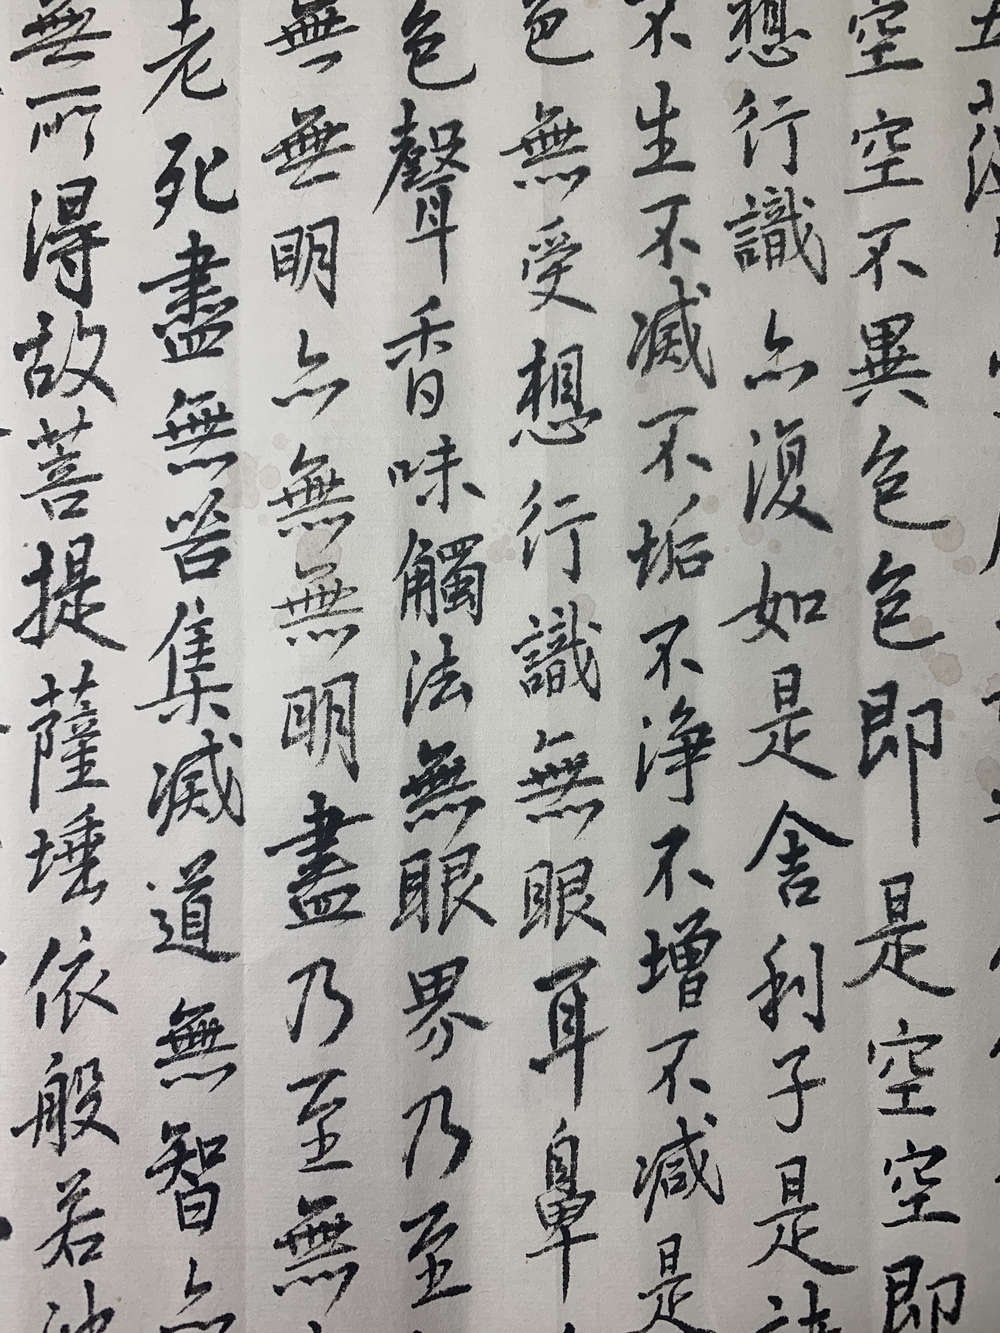 五蘊
空空不異色色即是空空即
想行識亦復如是舍利子是諸
不生不滅不垢不淨不增不減是
色無受想行識無眼耳鼻
色聲香味觸法無眼界乃至
無無明亦無無明盡乃至無
老死盡無苦集滅道無智亦
無所得故菩提薩埵依般若波